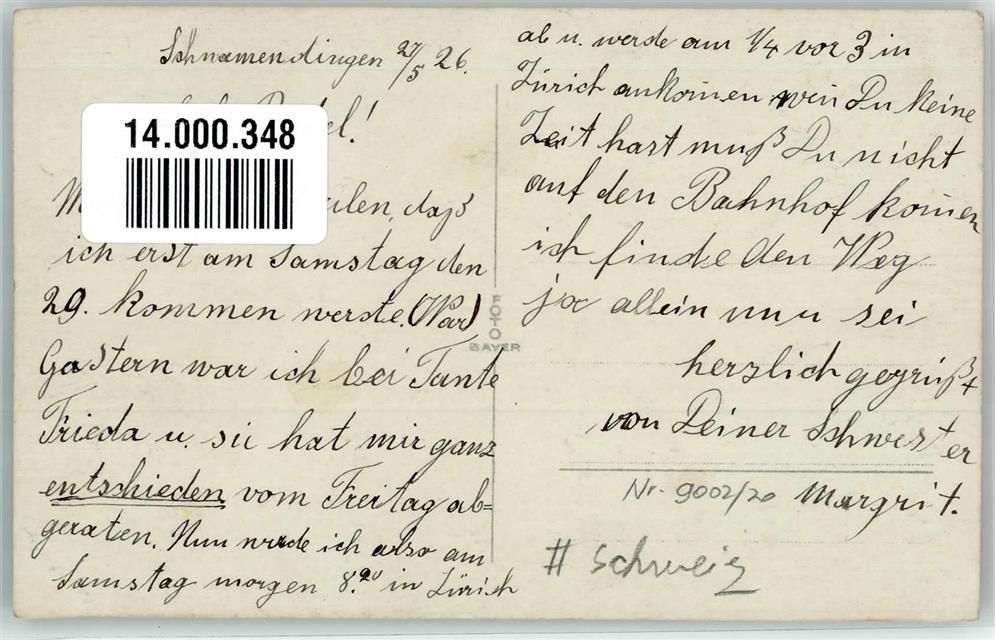 Schnamendingen 27/5 26.
14.000.348
el!
M
eilen, daß
ich erst am Samstag den
29. kommen werste. (War)
Gastern war ich bei Tante
Frieda u. sie hat mir ganz
entschieden vom Freitag ab=
geraten. Nun werde ich also am
Samstag morgen 8.20 in Zürich
ab u. werde am 1/4 vor 3 in
Zürich ankomen wen Du keine
Zeit hast muß Du nicht
auf den Bahnhof komen
ich finde den Weg
ja allein nun sei
herzlich gegrüßt
von Deiner Schwester
Margrit.
Nr. 9002/20
# Schweiz
FOTO
BAYER